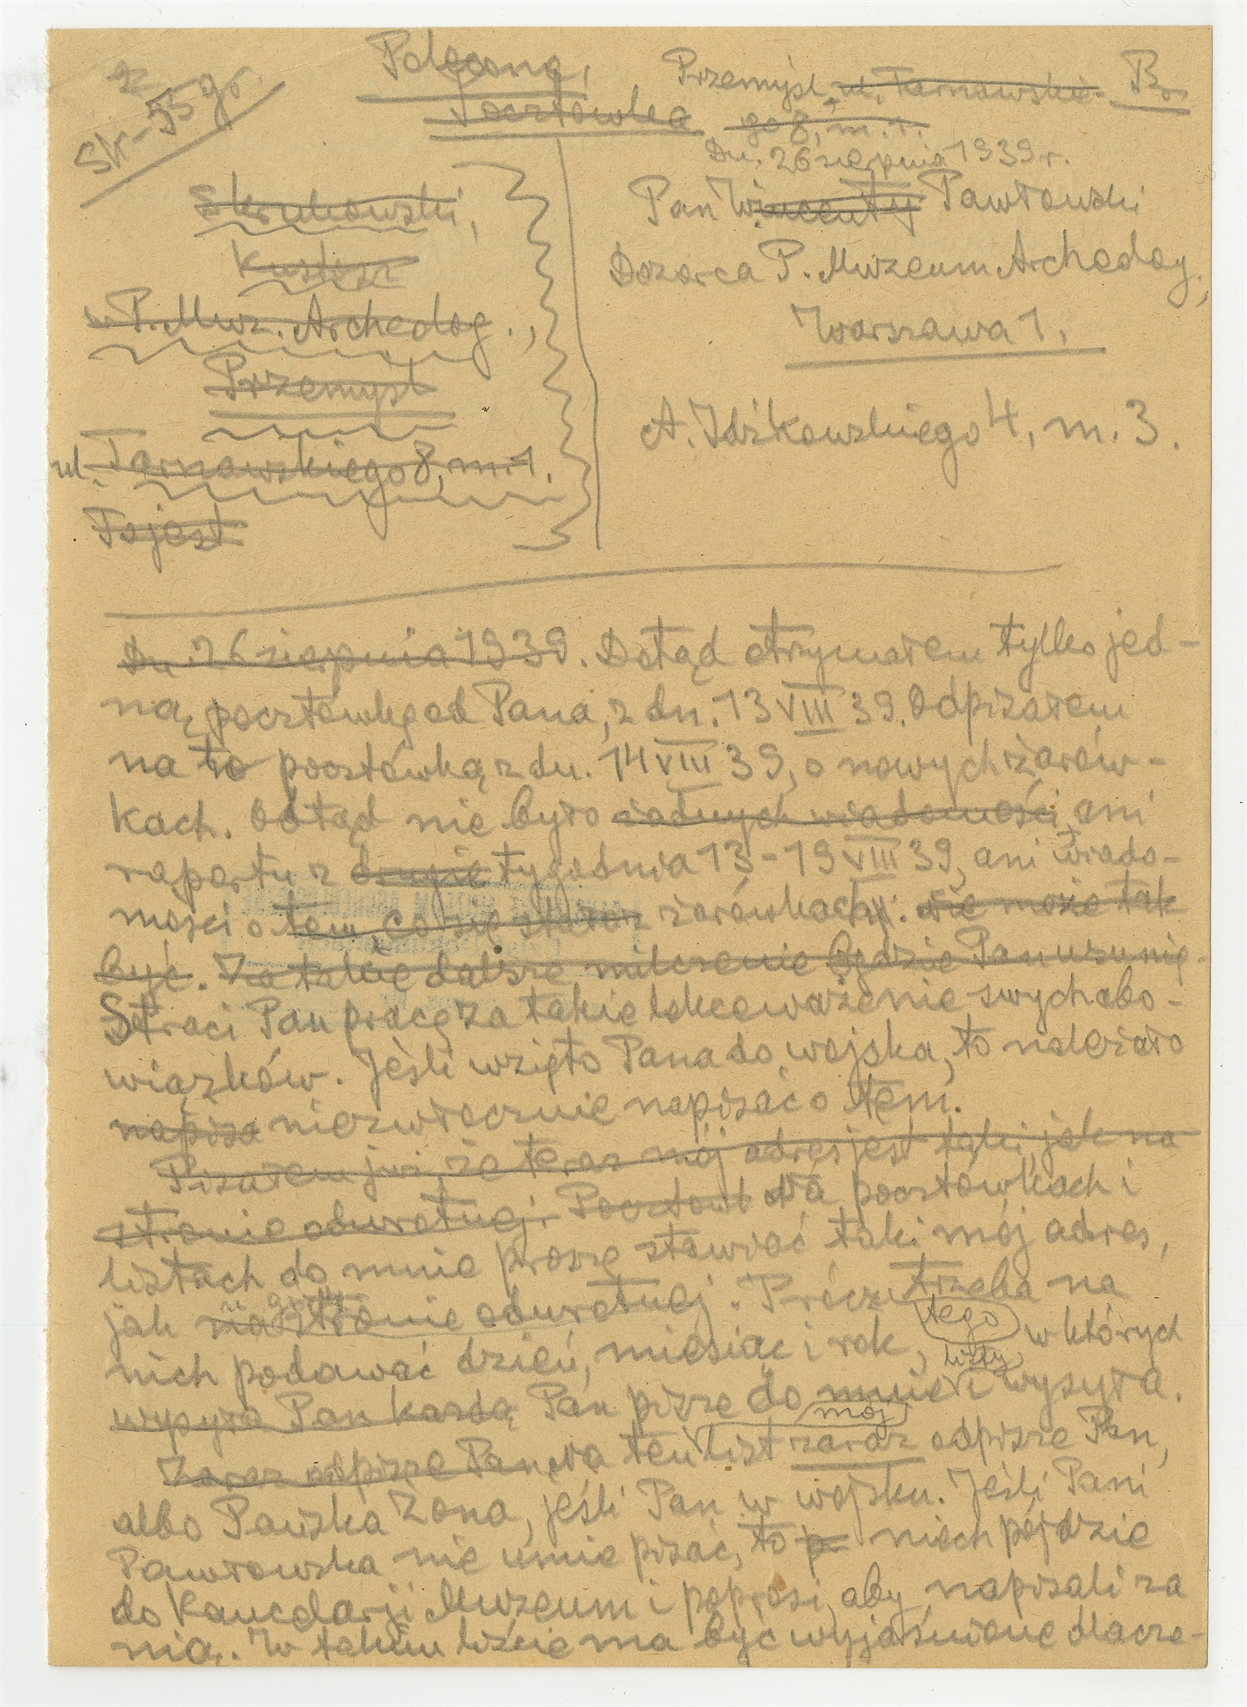 Sk-55 gr.
Polecona,
Pocztówka
Przemyśl, ul. Tarnawskie-
go 8, m. 1.
Br.
Dn. 26 sierpnia 1939 r.
Skrukowski,
Kustosz
P. Muz. Archeolog.,
Przemyśl
ul. Tarnawskiego 8, m. 1.
Tojest
Pan Wincenty Pawłowski
Dozorca P. Muzeum Archeolog.,
Warszawa 1,
A. Idźkowskiego 4, m. 3.
Dn. 26 sierpnia 1939. Dotąd otrzymałem tylko jed-
ną pocztówkę od Pana, z dn. 13 VIII 39. Odpisałem
na to pocztówką z dn. 14 VIII 39, o nowych żarów-
kach. Odtąd nie było żadnych wiadomości, ani
raportu z drugie tygodnia 13-19 VIII 39, ani wiado-
mości o tem, co się stało z żarówkach. Nie może tak
być. Za takie dalsze milczenie będzie Pan usunię
Straci Pan pracę za takie lekceważenie swych obo-
wiązków. Jeśli wzięto Pana do wojska, to należało
napisa niezwłocznie napisać o tem.
Pisałem już, że teraz mój adres jest taki, jak na
stronie odwrotnej. Pocztowl Na pocztówkach i
listach do mnie proszę stawiać taki mój adres,
jak na stronie odwrotnej. Prócz tego trzeba na
nich podawać dzień, miesiąc i rok, w których
wysyła Pan każdą Pan pisze do mnie listy i wysyła.
Zaraz odpisze Pan, Na ten mój list zaraz odpisze Pan,
albo Pańska Żona, jeśli Pan w wojsku. Jeśli Pani
Pawłowska nie umie pisać, to p niech pójdzie
do Kancelarji Muzeum i poprosi, aby napisali za
nią. W takim liście ma być wyjaśnione dlacze-